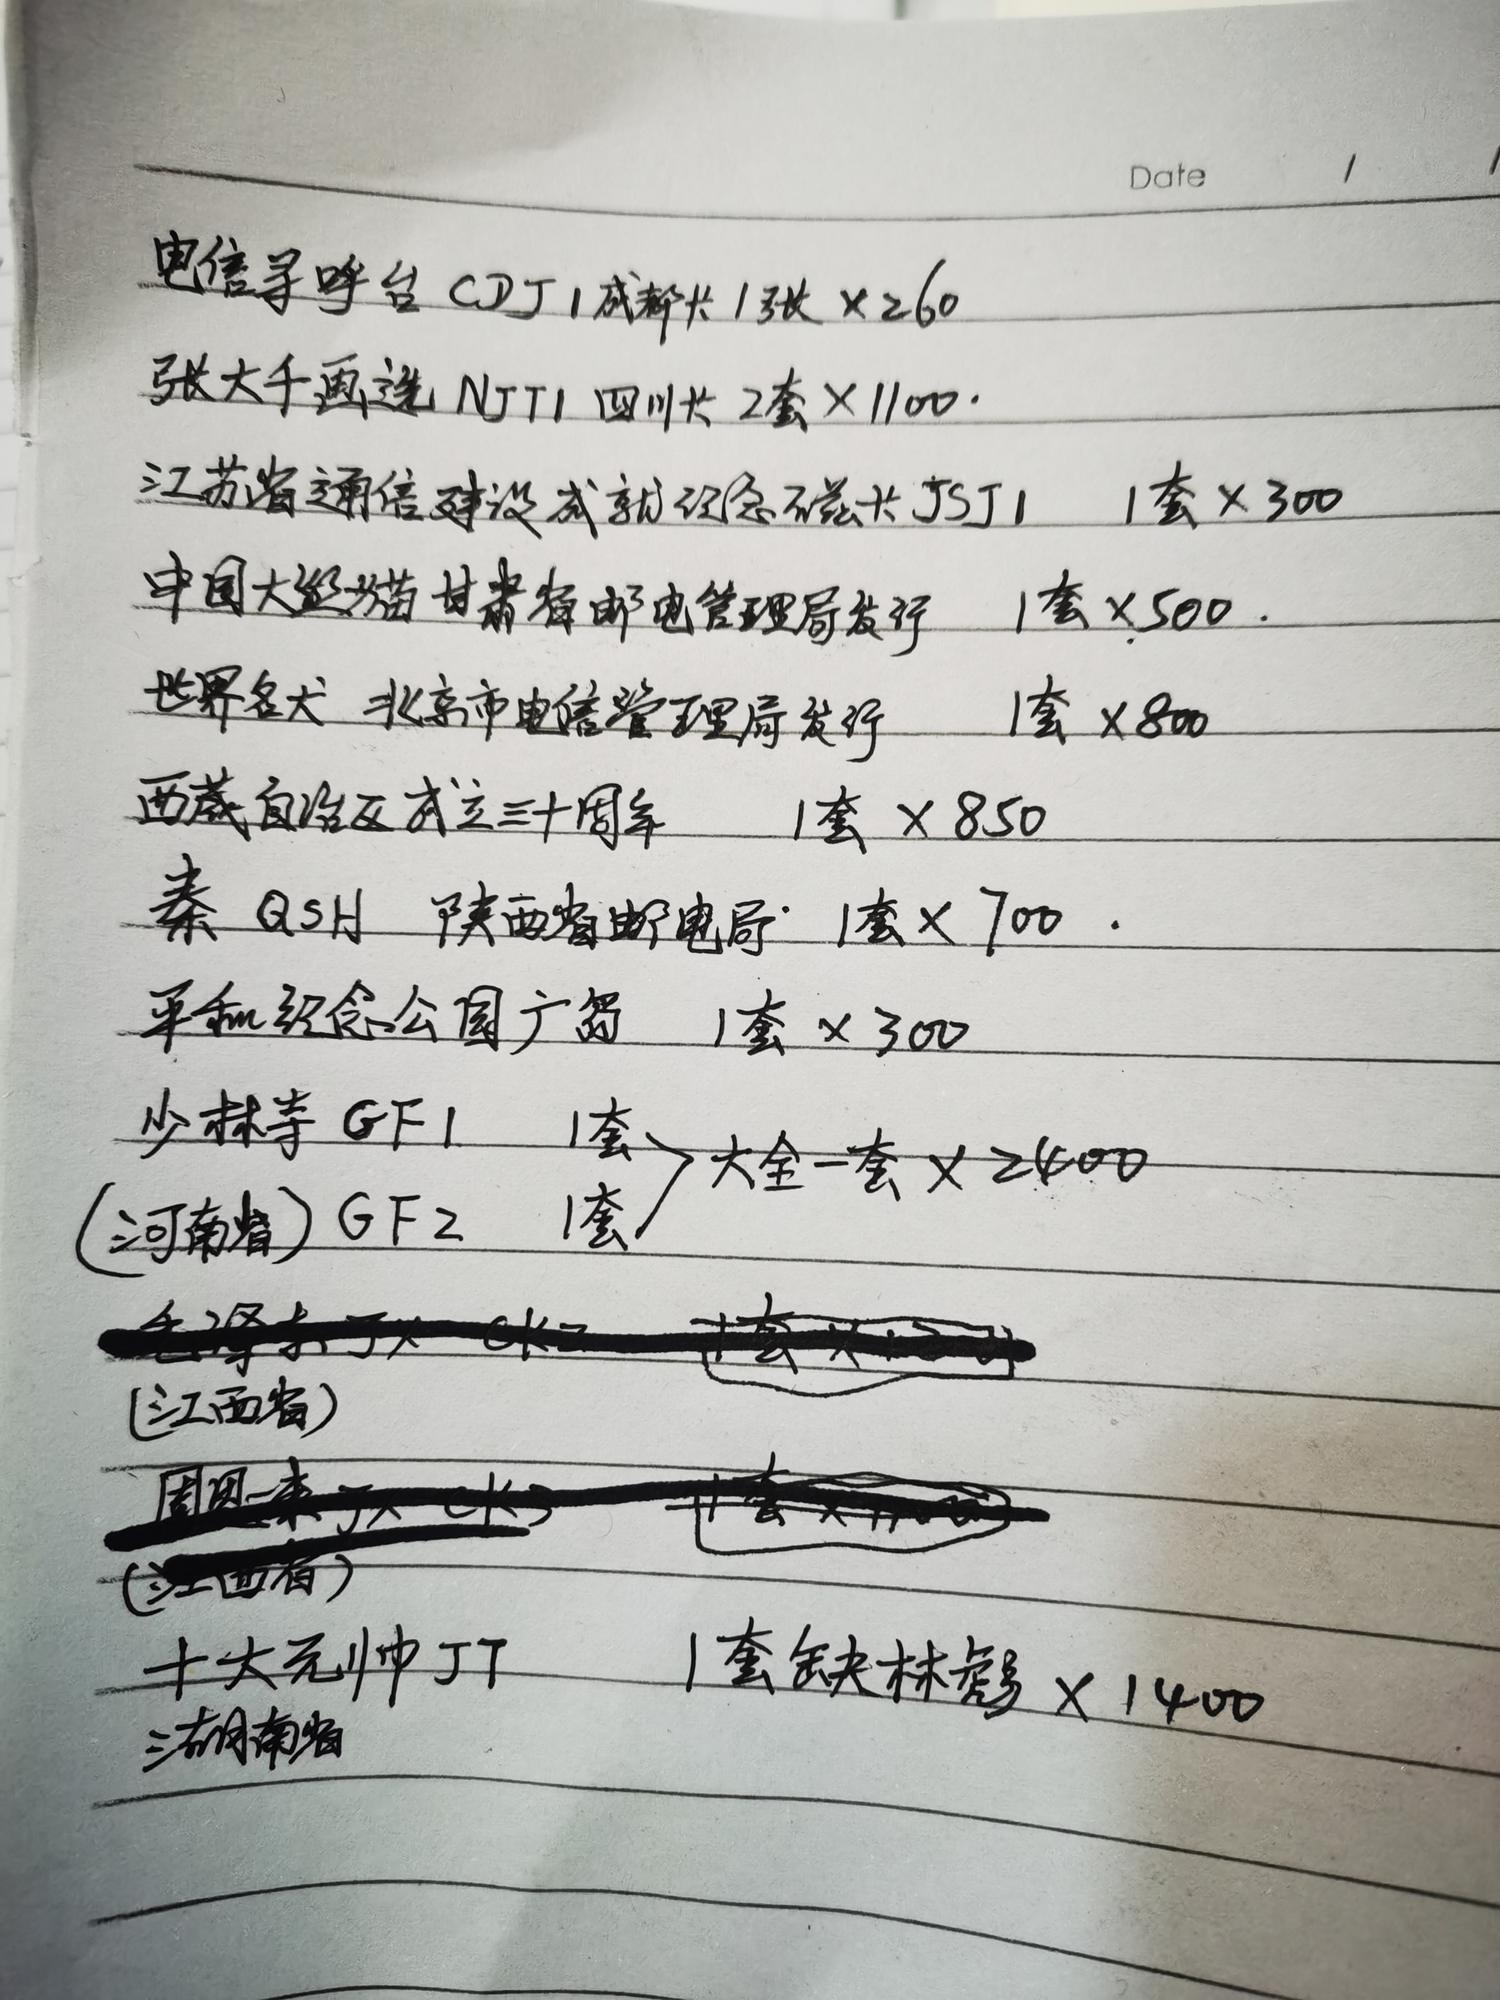 Date / /
电信寻呼台 CDJ1 成都卡 1张 ×260
张大千画选 NJT1 四川卡 2套×1100.
江苏省通信建设成就纪念磁卡JSJ1 1套×300
中国大熊猫甘肃省邮电管理局发行 1套×500.
世界名犬 北京市电信管理局发行 1套 ×800
西藏自治区成立三十周年 1套 ×850
秦 QSH 陕西省邮电局· 1套×700.
平和纪念公园广岛 1套 ×300
少林寺 GF1 1套
大全一套 × 2400
(河南省) GF2 1套
毛泽东JX CK2 1套 ×
(江西省)
周恩来JX CK3 1套 ×
(江西省)
十大元帅JT 1套缺林彪 × 1400
湖南省